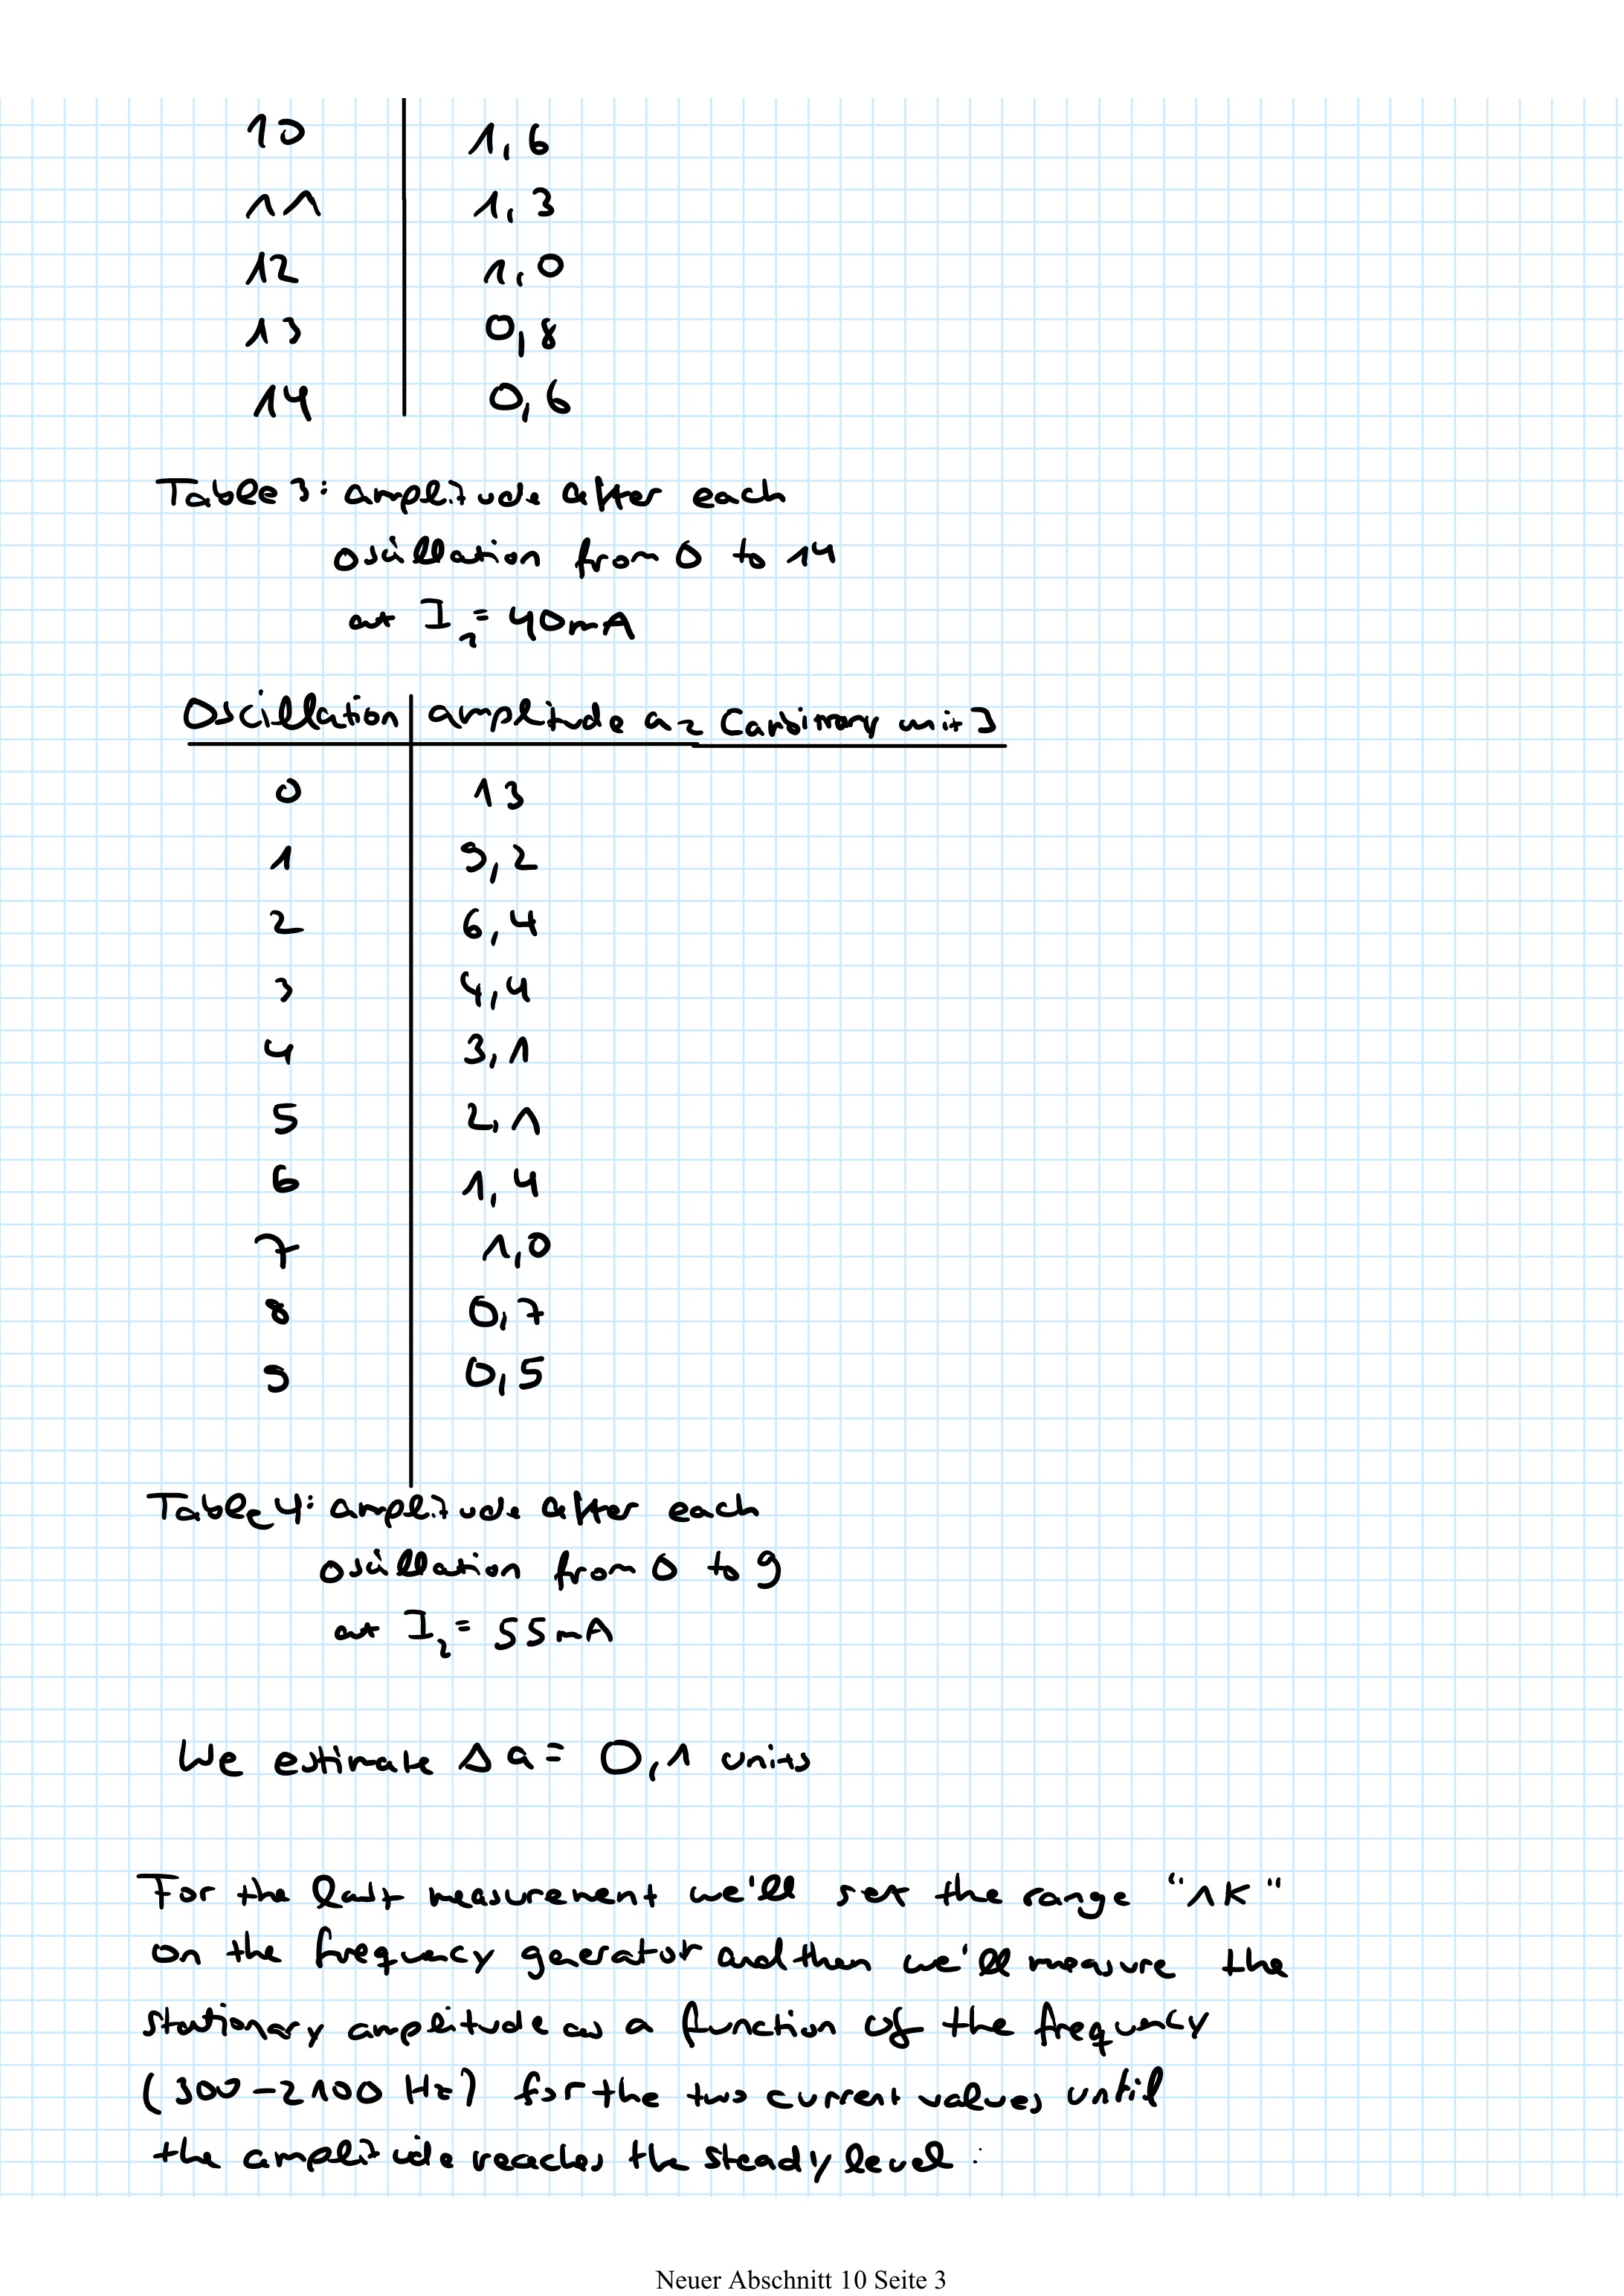 10 1,6
11 1,3
12 1,0
13 0,8
14 0,6
Table 3: amplitude after each
oscillation from 0 to 14
at I₁ = 40mA
Oscillation amplitude a₂ [arbitrary unit]
0 13
1 9,2
2 6,4
3 4,4
4 3,1
5 2,1
6 1,4
7 1,0
8 0,7
9 0,5
Table 4: amplitude after each
oscillation from 0 to 9
at I₂ = 55mA
We estimate Δa = 0,1 units
For the last measurement we'll set the range "1K"
on the frequency generator and then we'll measure the
stationary amplitude as a function of the frequency
(300-2100 Hz) for the two current values until
the amplitude reaches the steady level:
Neuer Abschnitt 10 Seite 3